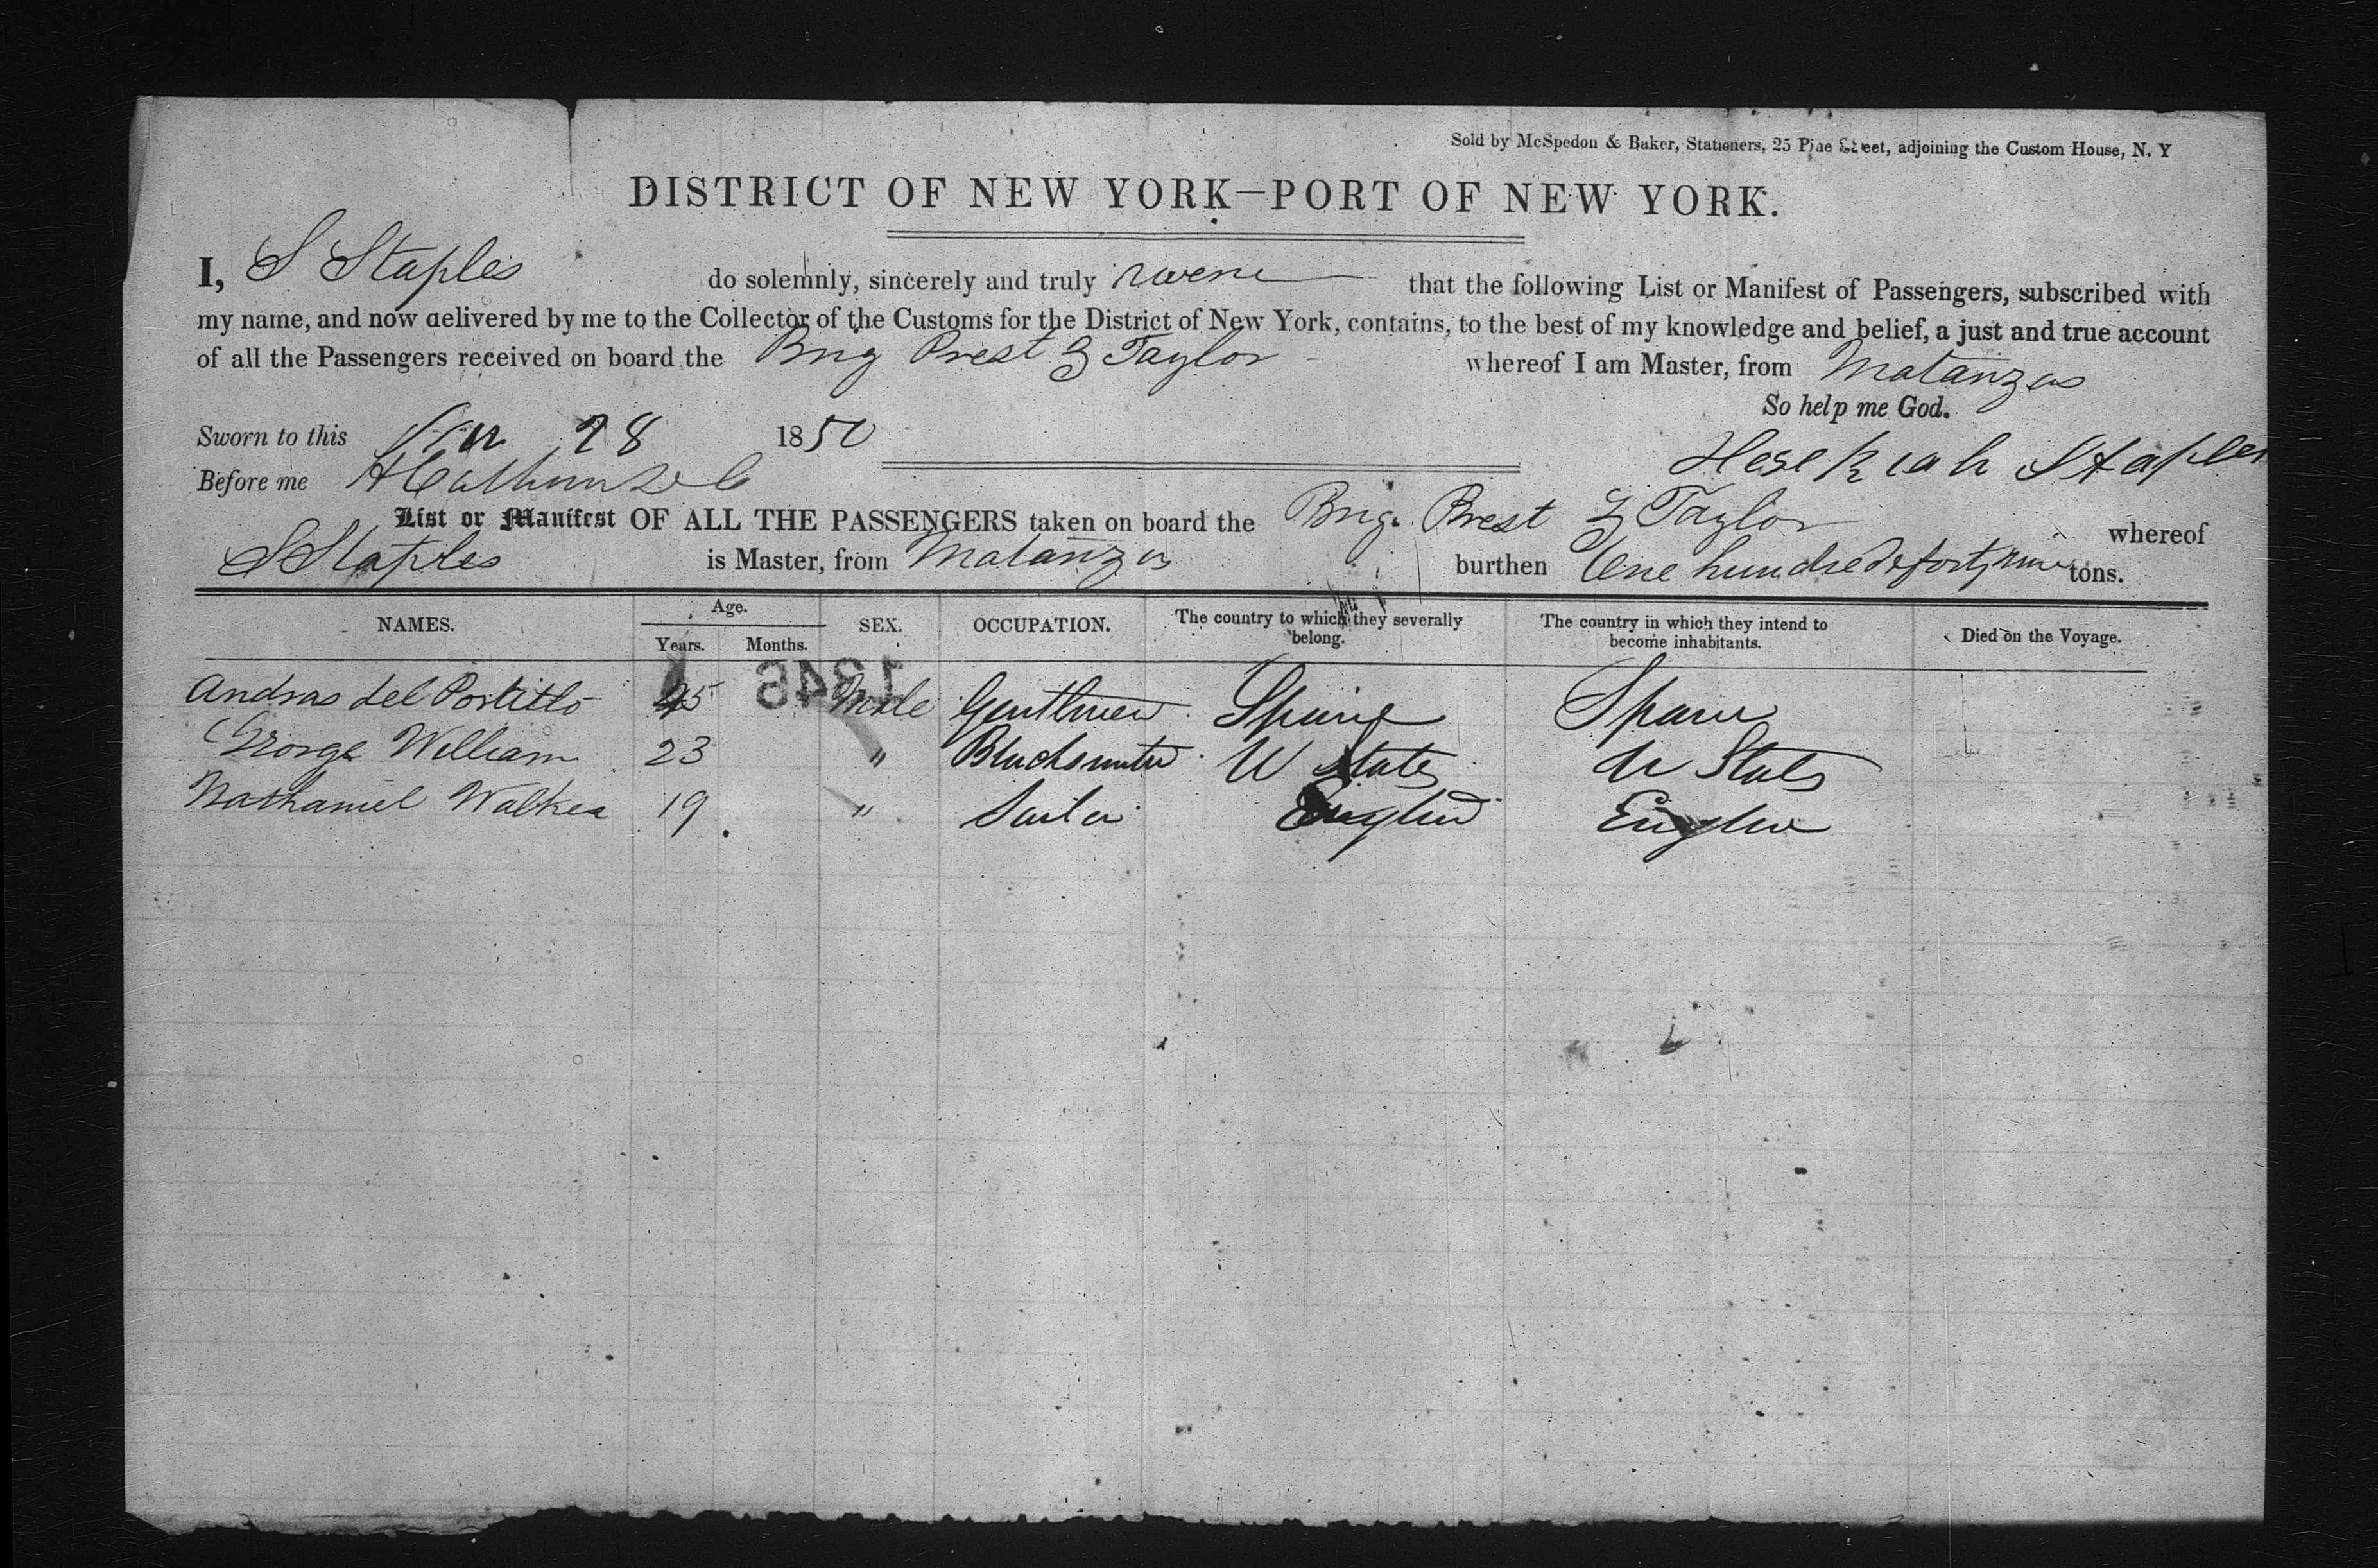 Sold by McSpedon & Baker, Stationers, 25 Pine Street, adjoining the Custom House, N. Y
DISTRICT OF NEW YORK—PORT OF NEW YORK.
I, S Staples do solemnly, sincerely and truly swear that the following List or Manifest of Passengers, subscribed with
my name, and now delivered by me to the Collector of the Customs for the District of New York, contains, to the best of my knowledge and belief, a just and true account
of all the Passengers received on board the Brig Prest Z Taylor whereof I am Master, from Matanzas
So help me God.
Sworn to this 28 1850
Hesekiah Staples
Before me
List or Manifest OF ALL THE PASSENGERS taken on board the Brig. Prest Z Taylor whereof
S Staples is Master, from Matanzas burthen One hundred & forty nine tons.
NAMES. Age. Years. Months. SEX. OCCUPATION. The country to which they severally belong. The country in which they intend to become inhabitants. Died on the Voyage.
1346
Andras del Portillo 45 Male Gentlemen Spain Spain
George William 23 " Blacksmith U States U States
Nathaniel Walker 19 " Sailor England England